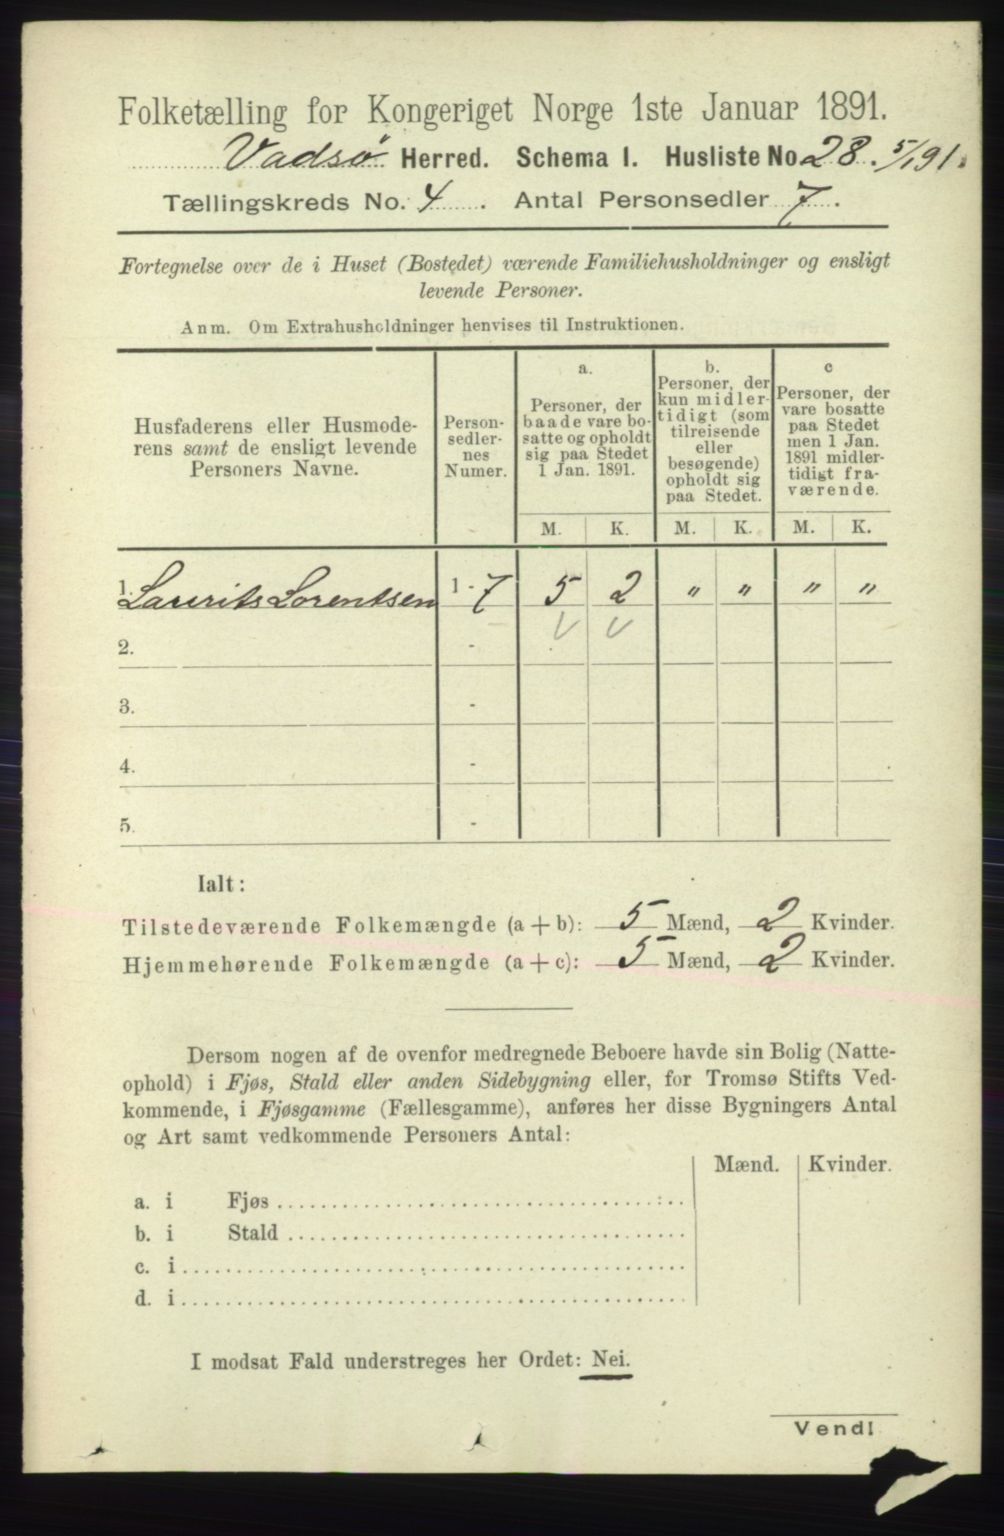 Folketælling for Kongeriget Norge 1ste Januar 1891.
Vadsø Herred. Schema I. Husliste No 28. 5/1 91.
Tællingskreds No. 4. Antal Personsedler 7.
Fortegnelse over de i Huset (Bostedet) værende Familiehusholdninger og ensligt
levende Personer.
Anm. Om Extrahusholdninger henvises til Instruktionen.
Husfaderens eller Husmode-
rens samt de ensligt levende
Personers Navne.
Person-
sedler-
nes
Numer.
a.
Personer, der
baade vare bo-
satte og opholdt
sig paa Stedet
1 Jan. 1891.
b.
Personer, der
kun midler-
tidigt (som
tilreisende
eller
besøgende)
opholdt sig
paa Stedet.
c
Personer, der
vare bosatte
paa Stedet
men 1 Jan.
1891 midler-
tidigt fra-
værende.
M. K. M. K. M. K.
1. Laurits Lorentsen 1 - 7 5 2 " " " "
2. -
3. -
4. -
5. -
Ialt:
Tilstedeværende Folkemængde (a + b): 5 Mænd, 2 Kvinder.
Hjemmehørende Folkemængde (a + c): 5 Mænd, 2 Kvinder.
Dersom nogen af de ovenfor medregnede Beboere havde sin Bolig (Natte-
ophold) i Fjøs, Stald eller anden Sidebygning eller, for Tromsø Stifts Ved-
kommende, i Fjøsgamme (Fællesgamme), anføres her disse Bygningers Antal
og Art samt vedkommende Personers Antal:
Mænd. Kvinder.
a. i Fjøs
b. i Stald
c. i
d. i
I modsat Fald understreges her Ordet: Nei.
Vend!